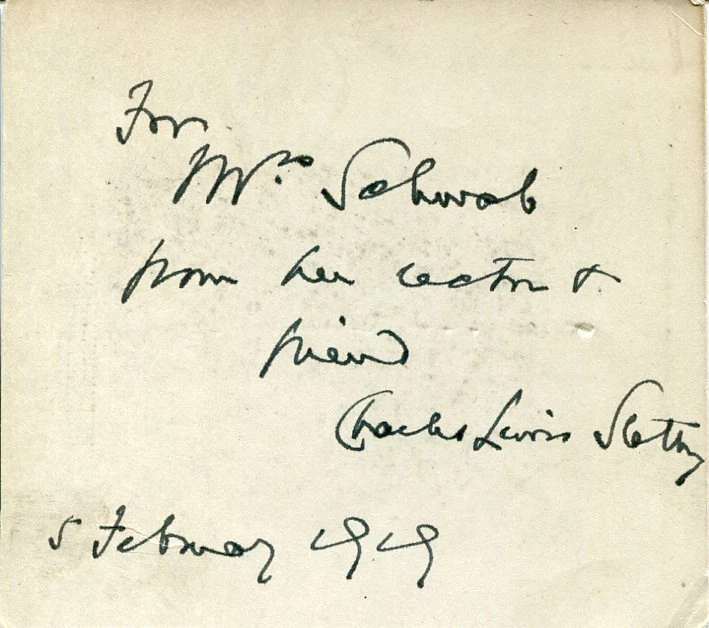 For
Mrs Schwab
from her rector &
friend
Charles Lewis Slattery
5 February 1919